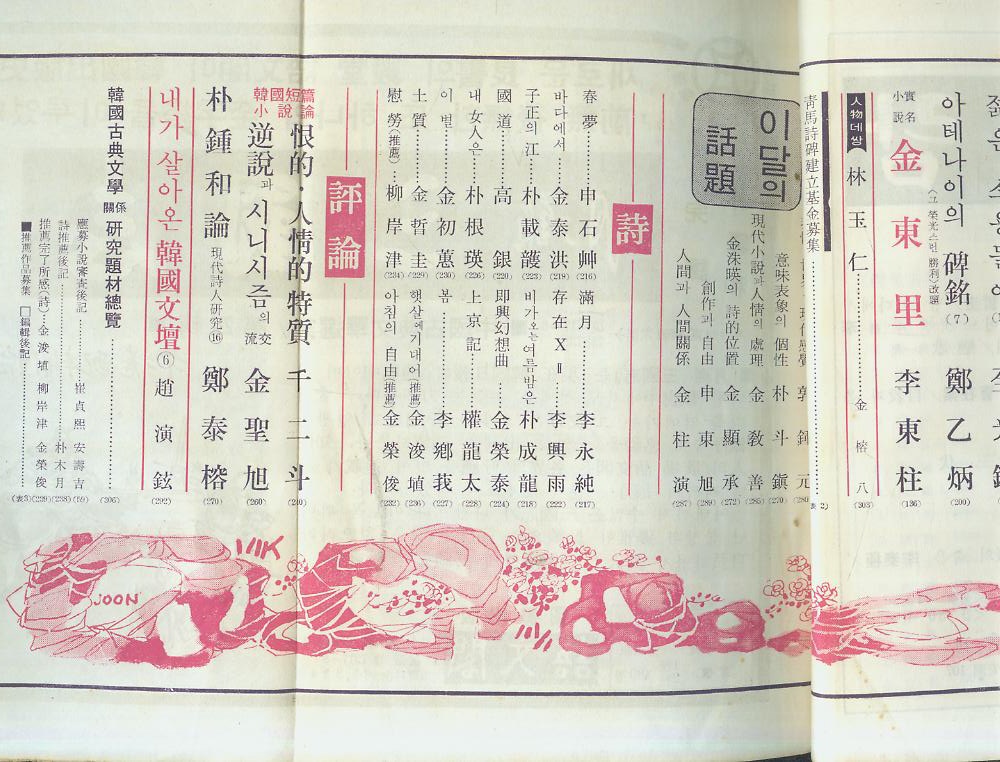 아테나이의 碑銘(7) 鄭乙炳 (200)
實名小說 金東里 李東柱 (136)
〈그 榮光스런 勝利〉改題
人物데쌍 林玉仁 金榕八 (303)
靑馬詩碑建立基金募集 (表2)
이달의 話題
意味表象의 個性 朴斗鎭 (270)
現代小說과 人情의 處理 金敎善 (285)
金洙暎의 詩的位置 金顯承 (272)
創作과 自由 申東旭 (289)
人間과 人間關係 金柱演 (287)
詩
春夢 申石艸 (216)
滿月 李永純 (217)
바다에서 金泰洪 (219)
存在X Ⅱ 李興雨 (222)
子正의 江 朴載頀 (223)
비가오는여름밤은 朴成龍 (218)
國道 高銀 (220)
即興幻想曲 金榮泰 (224)
내 女人은 朴根瑛 (226)
上京記 權龍太 (228)
이별 金初蕙 (230)
봄 李鄕莪 (227)
土質 金哲圭 (229)
햇살에기대어(推薦) 金浚埴 (236)
慰勞(推薦) 柳岸津 (234)
아침의 自由(推薦) 金榮俊 (232)
評論
韓國短篇小說論
恨的·人情的特質 千二斗 (240)
逆說과 시니시즘의 交流 金聖旭 (260)
朴鍾和論 現代詩人研究⑯ 鄭泰榕 (270)
내가 살아온 韓國文壇⑹ 趙演鉉 (292)
韓國古典文學關係 研究題材總覽 (306)
應募小說審査後記 崔貞熙 安壽吉 (59)
詩推薦後記 朴木月 (238)
推薦完了所感(詩) 金浚埴 柳岸津 金榮俊 (239)
■推薦作品募集 □編輯後記 (表3)
JOON